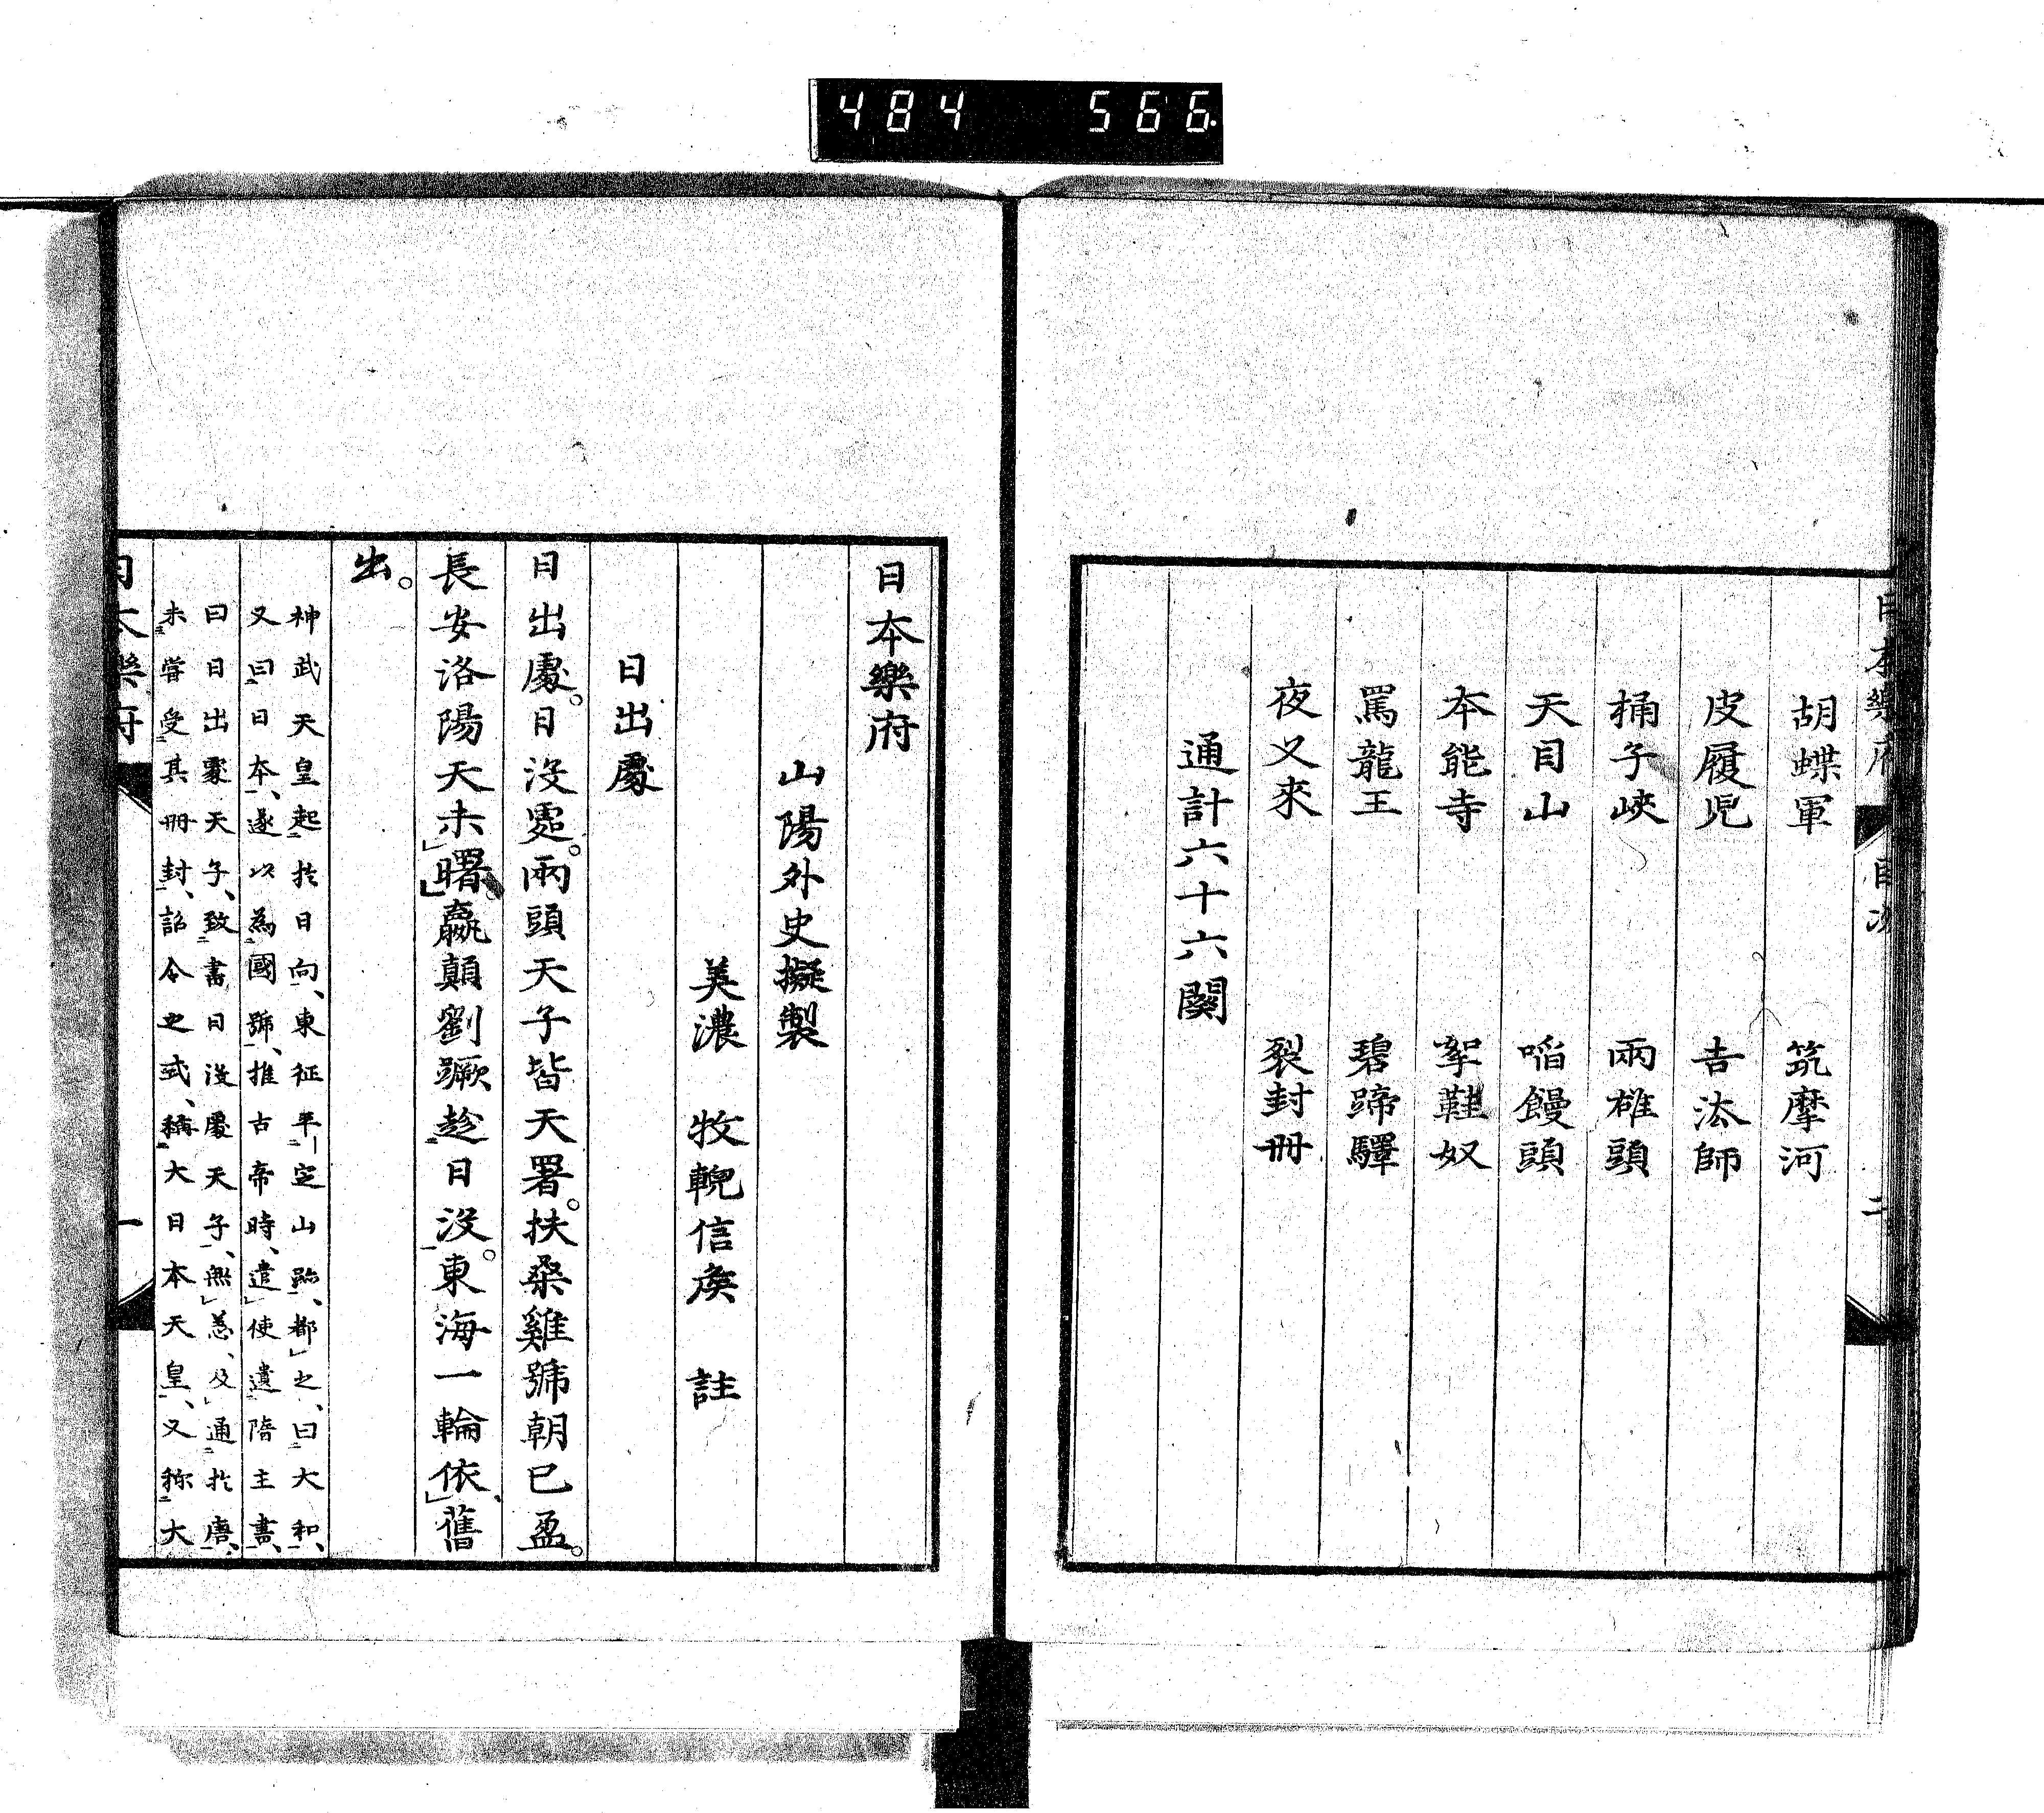 484 566
日本樂府
目次
二
胡蝶軍
筑摩河
皮履児
吉法師
桶子峽
兩雄頭
天目山
啗饅頭
本能寺
挐鞋奴
罵龍王
碧蹄驛
夜叉來
裂封冊
通計六十六闋
日本樂府
山陽外史擬製
美濃 牧輗信矦 註
日出處
日出處。日沒處。兩頭天子皆天署。扶桑雞號朝已盈。
長安洛陽天未曙。嬴顛劉蹶趁日沒。東海一輪依舊
出。
神武天皇起於日向、東征平定山跡、都之、曰大和、
又曰日本、遂以為國號、推古帝時、遣使遺隋主書、
曰日出處天子、致書日沒處天子、無恙、及通於唐、
未嘗受其冊封、詔令之式、稱大日本天皇、又称大
日本樂府
一